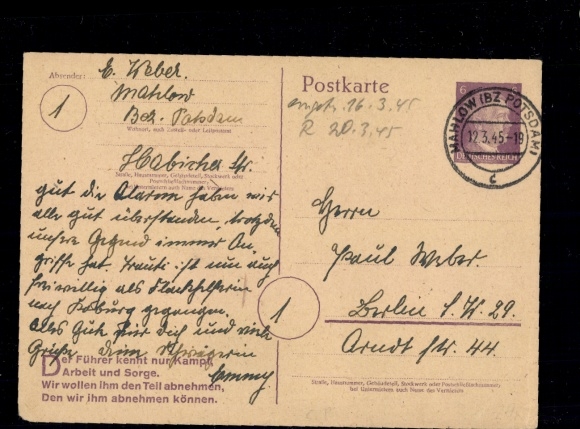 Absender:
E. Weber.
Mahlow
Bez. Potsdam
Wohnort, auch Zustell- oder Leitpostamt
1
Habichts Str.
Straße, Hausnummer, Gebäudeteil, Stockwerk oder
Postschließfachnummer,
bei Untermietern auch Name des Vermieters
gut die Alarme haben wir
alle gut überstanden, trotzdem
unsere Gegend immer An
griffe hat. Trauti ist nun auch
freiwillig als Flackhelferin
nach Koburg gegangen.
Alles Gute für Dich und viele
Grüße Deine Schwägerin
Emmy
Der Führer kennt nur Kampf,
Arbeit und Sorge.
Wir wollen ihm den Teil abnehmen,
Den wir ihm abnehmen können.
Postkarte
empf. 16.3.45
R 20.3.45
6
MAHLOW (BZ POTSDAM)
12.3.45-19
c
DEUTSCHES REICH
Herrn
Paul Weber.
1
Berlin S.W. 29.
Arndt Str. 44.
Straße, Hausnummer, Gebäudeteil, Stockwerk oder Postschließfachnummer;
bei Untermietern auch Name des Vermieters